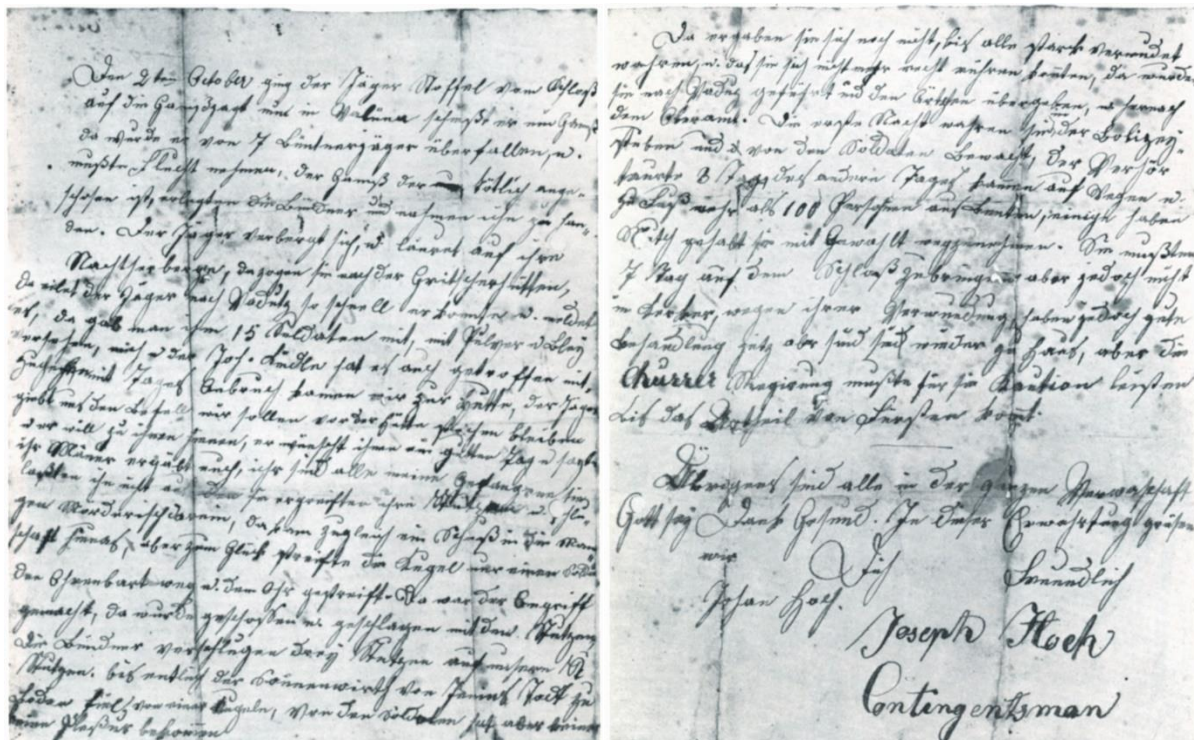 Den 2ten October ging der Jäger Stoffel vom Schloß
auf die Gamsjagt und in Valüna schießt er ein Gamß
da wurde er von 7 Bündnerjäger überfallen, u.
mußte Flucht nehmen, der Gamß der tötlich ange-
schosen ist, erlegten die Bündner und nahmen ihn zu han-
den. Der Jäger verbergt sich, u. lauret auf ihre
Nachtherberge, da zogen sie nach der Gritscherhütten,
da eilet der Jäger nach Vadutz so schnell er konnte u. meldet
es, da gab man ihm 15 Soldaten mit, mit Pulver u Bley
versehen, mich u der Joh. hat es auch getroffen mit
mit Tages Anbruch kamen wir zur Hütte, der Jäger
giebt uns den Befell wir sollen vor der Hütte stehen bleiben
und er will zu ihnen hinein, er wünscht ihnen ein guten Tag u sagt
ihr Mäner ergäbt euch, ihr sind alle meine Gefangene sie
laßten ihn nicht sie ergreiften ihre Stutzen u.
gen Mörderisch darein, da kam zugleich ein Schuß in die Man-
schaft hinaus, aber zum Glück streifte die Kugel nur einem
den Ohrenbart weg u. dem Ohr gestreift. Da war der Angriff
gemacht, da wurde geschossen u. geschlagen mit den Stutzen,
die Bündner verschlugen drey Stutzen auf unsern
Stutzen. bis entlich der Sonnenwirth von Jennas Todt zu
Boden fiel, von einer Kugeln, von den Soldaten hat aber keiner
keine bekommen
Da ergaben sie sich noch nicht, bis alle stark verwundet
wahren, u. das sie sich nicht mehr recht rühren konten, da wurden
sie nach Vaduz geführt und den Ärtzten übergeben, u hernach
dem Oberamt. Die erste Nacht wahren sie der Bolizey-
und 2 von den Soldaten Bewacht, der Verhör
taurte 3 Tag, des andern Tages kamen auf Wegen u.
zu Fuß mehr als 100 Persohnen aus Bünten, einige haben
gehabt sie mit Gewahlt wegzunehmen. Sie mußten
7 Tag auf dem Schloß zubringen aber jedoch nicht
im Kerker, wegen ihrer Verwundung, haben jedoch gute
Behandlung jetz aber sind sie wieder zu Haus, aber die
Churrer Regirung mußte für sie Kaution leisten
bis das Urtheil vom Fürsten komt.
Übrigens sind alle in der ganzen Verwaschaft
Gott sey Dank Gesund. In dieser Erwahrtung grüsen
wir Dich Freundlich
Johan Hoch.
Joseph Hoch
Contingentsman